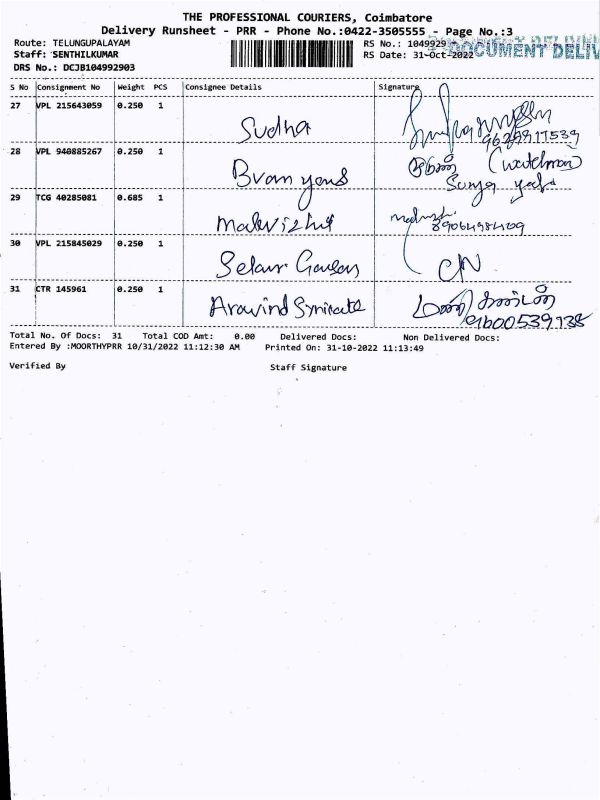 THE PROFESSIONAL COURIERS, Coimbatore
Delivery Runsheet - PRR - Phone No.:0422-3505555 - Page No.:3
Route: TELUNGUPALAYAM RS No.: 1049929
Staff: SENTHILKUMAR RS Date: 31-Oct-2022 DOCUMENT DELIV
DRS No.: DCJB104992903
S No Consignment No Weight PCS Consignee Details Signature
27 VPL 215643059 0.250 1
Sudha 9629917539
28 VPL 940885267 0.250 1 (watchman)
29 TCG 40285081 0.685 1
30 VPL 215845029 0.250 1
CN
31 CTR 145961 0.250 1
Aravind மணிகண்டன்
9600539738
Total No. Of Docs: 31 Total COD Amt: 0.00 Delivered Docs: Non Delivered Docs:
Entered By :MOORTHYPRR 10/31/2022 11:12:30 AM Printed On: 31-10-2022 11:13:49
Verified By Staff Signature